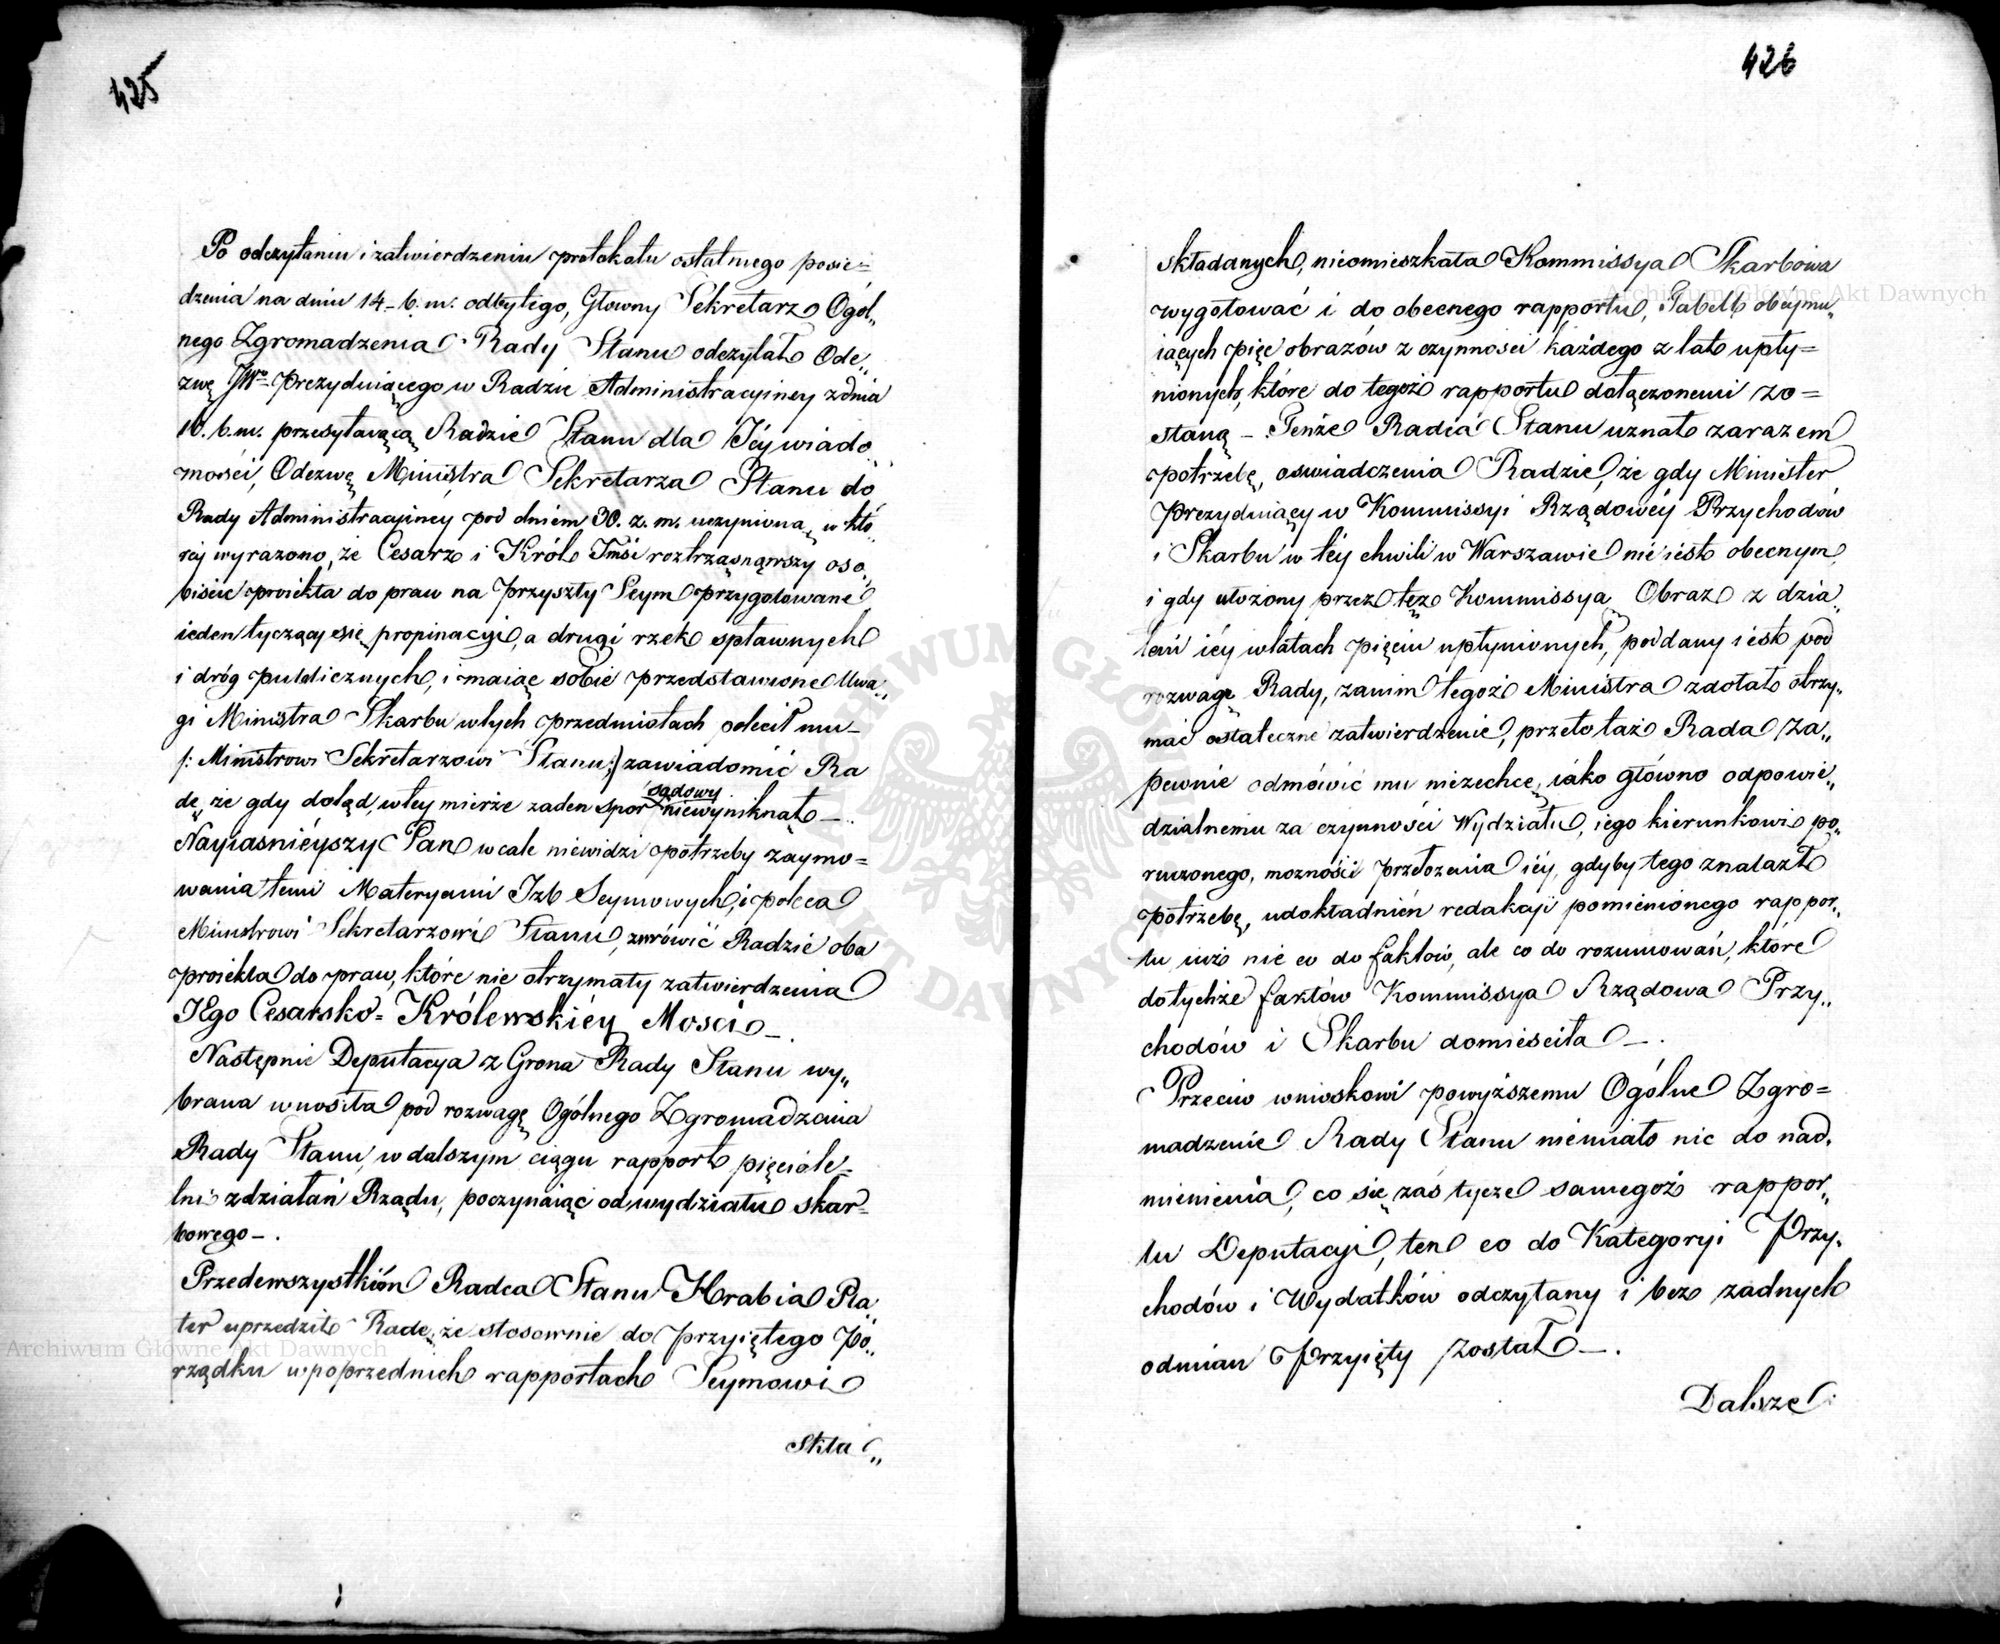 425
Po odczytaniu i zatwierdzeniu protokołu ostatniego posie=
dzenia na dniu 14 b. m. odbytego, Głowny Sekretarz Ogól„
nego Zgromadzenia Rady Stanu odczytał Ode„
zwę JWo Prezyduiącego w Radzie Administracyiney z dnia
10. b. m. przesyłaiącą Radzie Stanu dla Iéy wiado„
mości, Odezwę Ministra Sekretarza Stanu do
Rady Administracyinéy pod dniem 30. z. m. uczynioną, w któ„
réy wyrażono, że Cesarz i Król Jmść roztrząsnąwszy oso„
biście proiekta do praw na przyszły Seym przygotowane
ieden tyczący się propinacyi, a drugi rzek spławnych
i dróg publicznych, i maiąc sobie przedstawione Uwa„
gi Ministra Skarbu w tych przedmiotach polecił mu
/: Ministrowi Sekretarzowi Stanu :/ zawiadomić Ra
dę, że gdy dotąd, w tey mierze żaden spór sądowy niewyniknął —.
Nayiaśnieyszy Pan wcale niewidzi potrzeby zaymo=
wania temi Materyami Izb Seymowych, i poleca
Ministrowi Sekretarzowi Stanu, zwrócić Radzie oba
proiekta do praw, które nie otrzymały zatwierdzenia
JEgo Cesarsko=Królewskiéy Mości —
Następnie Deputacya z Grona Rady Stanu wy„
brana wnosiła pod rozwagę Ogólnego Zgromadzenia
Rady Stanu, w dalszym ciągu rapport pięciole=
tni z działań Rządu, poczynaiąc od wydziału skar=
bowego —.
Przedewszystkiém Radca Stanu Hrabia Pla„
ter uprzedził Radę, że stosownie do przyiętego po„
rządku w poprzednich rapportach Seymowi
skła„
426
składanych, nieomieszkała Kommissya Skarbowa
wygotować i do obecnego rapportu, Tabell obeymu„
iących pięć obrazów z czynności każdego z lat upły=
nionych, które do tegoż rapportu dołączonemi zo=
staną — Tenże Radca Stanu uznał zarazem
potrzebę, oświadczenia Radzie, że gdy Minister
Prezyduiący w Kommissyi Rządowéy Przychodów
i Skarbu w téy chwili w Warszawie nie iest obecnym
i gdy ułożony przez tęż Kommissyą Obraz z dzia„
łań iéy w latach pięciu upłynionych, poddany iest pod
rozwagę Rady, zanim tegoż Ministra zdołał otrzy„
mać ostateczne zatwierdzenie, przeto taż Rada za„
pewnie odmówić mu niezechce, iako główno odpowie„
dzialnemu za czynności Wydziału, iego kierunkowi po„
ruczonego, możności przełożenia iéy, gdyby tego znalazł
potrzebę, udokładnień redakcyi pomienionego rappor„
tu iuż nie co do faktów, ale co do rozumowań, które
do tychże faktów Kommissya Rządowa Przy„
chodów i Skarbu domieściła —.
Przeciw wnioskowi powyższemu Ogólne Zgro=
madzenie Rady Stanu niemiało nic do nad„
mienienia, co się zaś tycze samegoż rappor„
tu Deputacyi, ten co do Kategoryi Przy„
chodów i Wydatków odczytany i bez żadnych
odmian przyięty został —.
Dalsze
Archiwum Główne Akt Dawnych
Archiwum Główne Akt Dawnych
ARCHIWUM GŁÓWNE AKT DAWNYCH